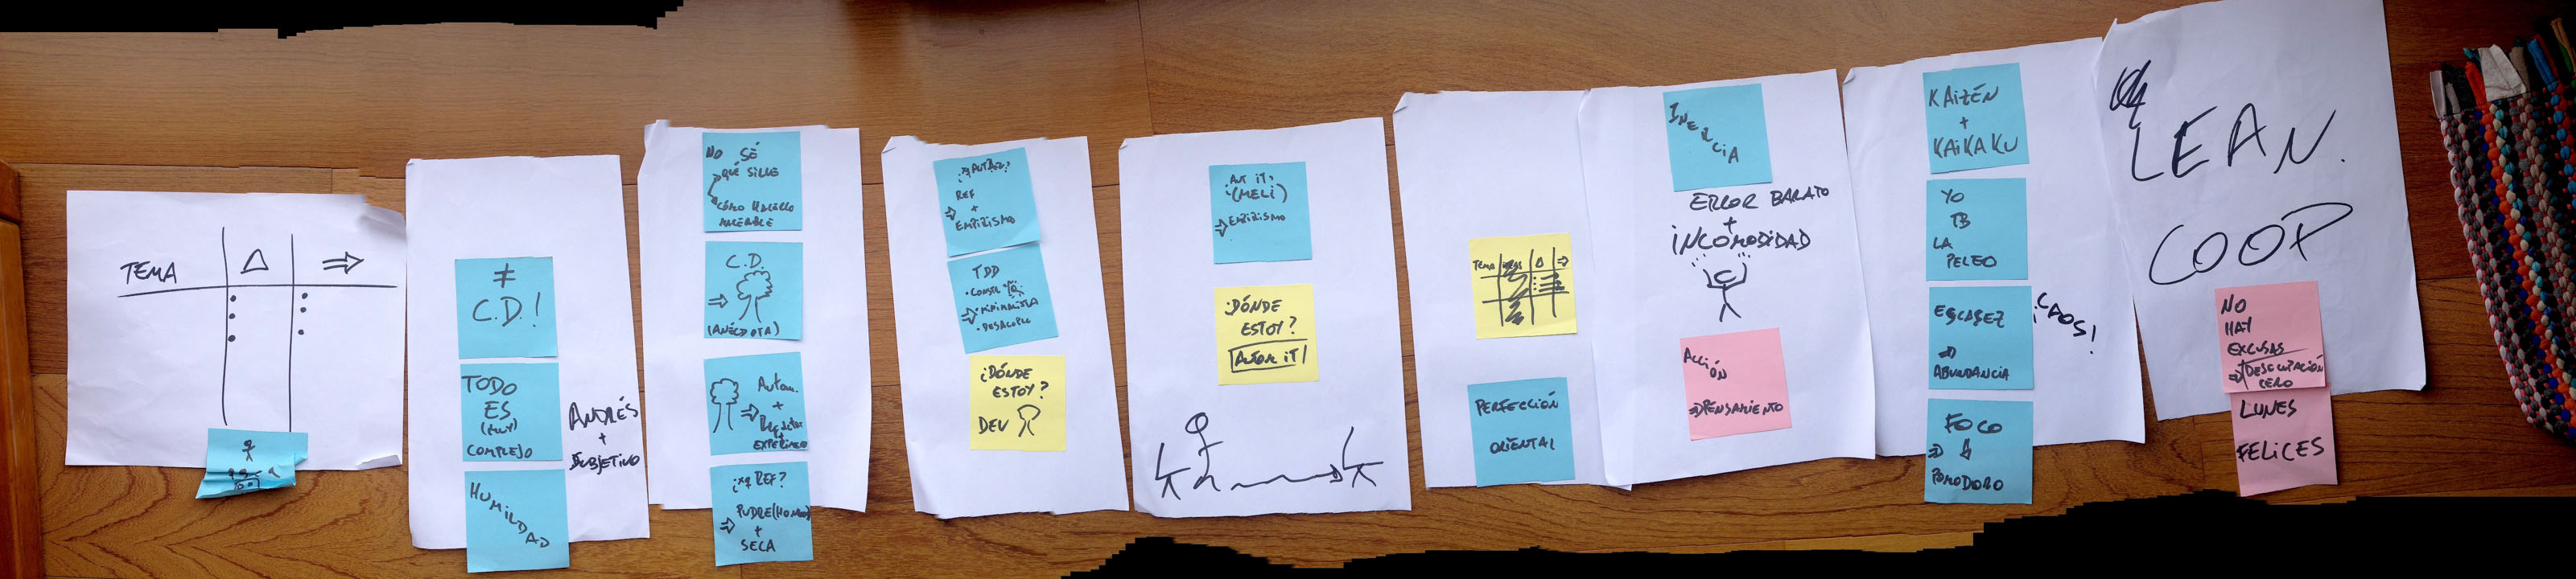 TEMA
≠
C.D.!
TODO
ES
(MUY)
COMPLEJO
ANDRÉS
+
SUBJETIVO
HUMILDAD
NO SÉ
QUÉ SIRVE
CÓMO HACERLO
C.D.
(ANÉCDOTA)
Autom.
+
EXPERIMENTO
¿XQ REF?
PUDRE (HONGO)
+
SECA
REF
+
EMPIRISMO
TDD
• MINIMALISTA
• DESACOPLE
¿DÓNDE
ESTOY?
DEV
(MELI)
EMPIRISMO
¿DÓNDE
ESTOY?
TEMA
PERFECCIÓN
ORIENTAL
INERCIA
ERROR BARATO
+
INCOMODIDAD
ACCIÓN
PENSAMIENTO
KAIZÉN
+
KAIKAKU
YO
TB
LA
PELEO
ESCASEZ
ABUNDANCIA
¡CAOS!
FOCO
POMODORO
LEAN.
COOP
NO
HAY
EXCUSAS
DESOCUPACIÓN
CERO
LUNES
FELICES